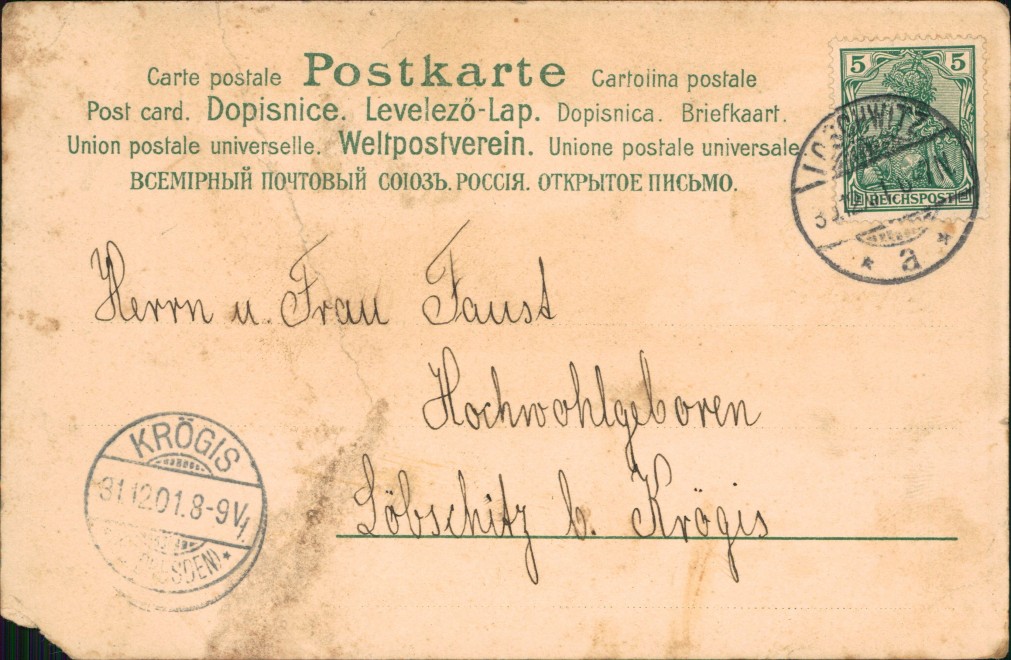 Carte postale Postkarte Cartolina postale
Post card. Dopisnice. Levelező-Lap. Dopisnica. Briefkaart.
Union postale universelle. Weltpostverein. Unione postale universale
ВСЕМІРНЫЙ ПОЧТОВЫЙ СОЮЗЪ. РОССІЯ. ОТКРЫТОЕ ПИСЬМО.
5 5
REICHSPOST
LOSCHWITZ
* a *
Herrn u. Frau Faust
Hochwohlgeboren
Löbschitz b. Krögis
KRÖGIS
31.12.01.8-9V.
(DRESDEN) *